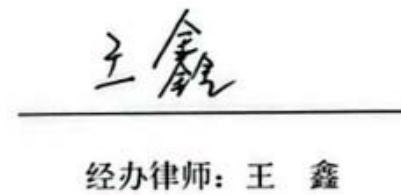 王鑫
经办律师：王　鑫